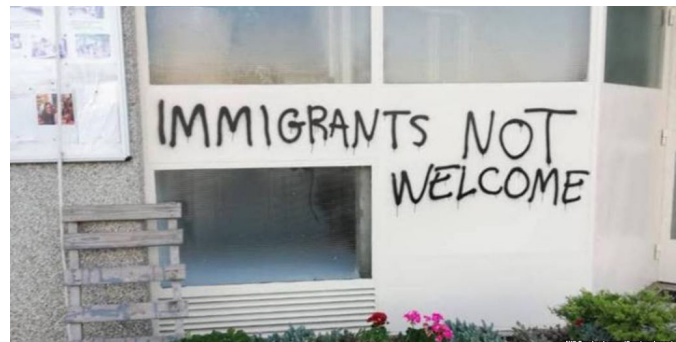 IMMIGRANTS NOT
WELCOME